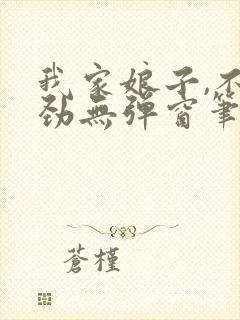 我家娘子,不
劲無彈窗筆
蒼槿